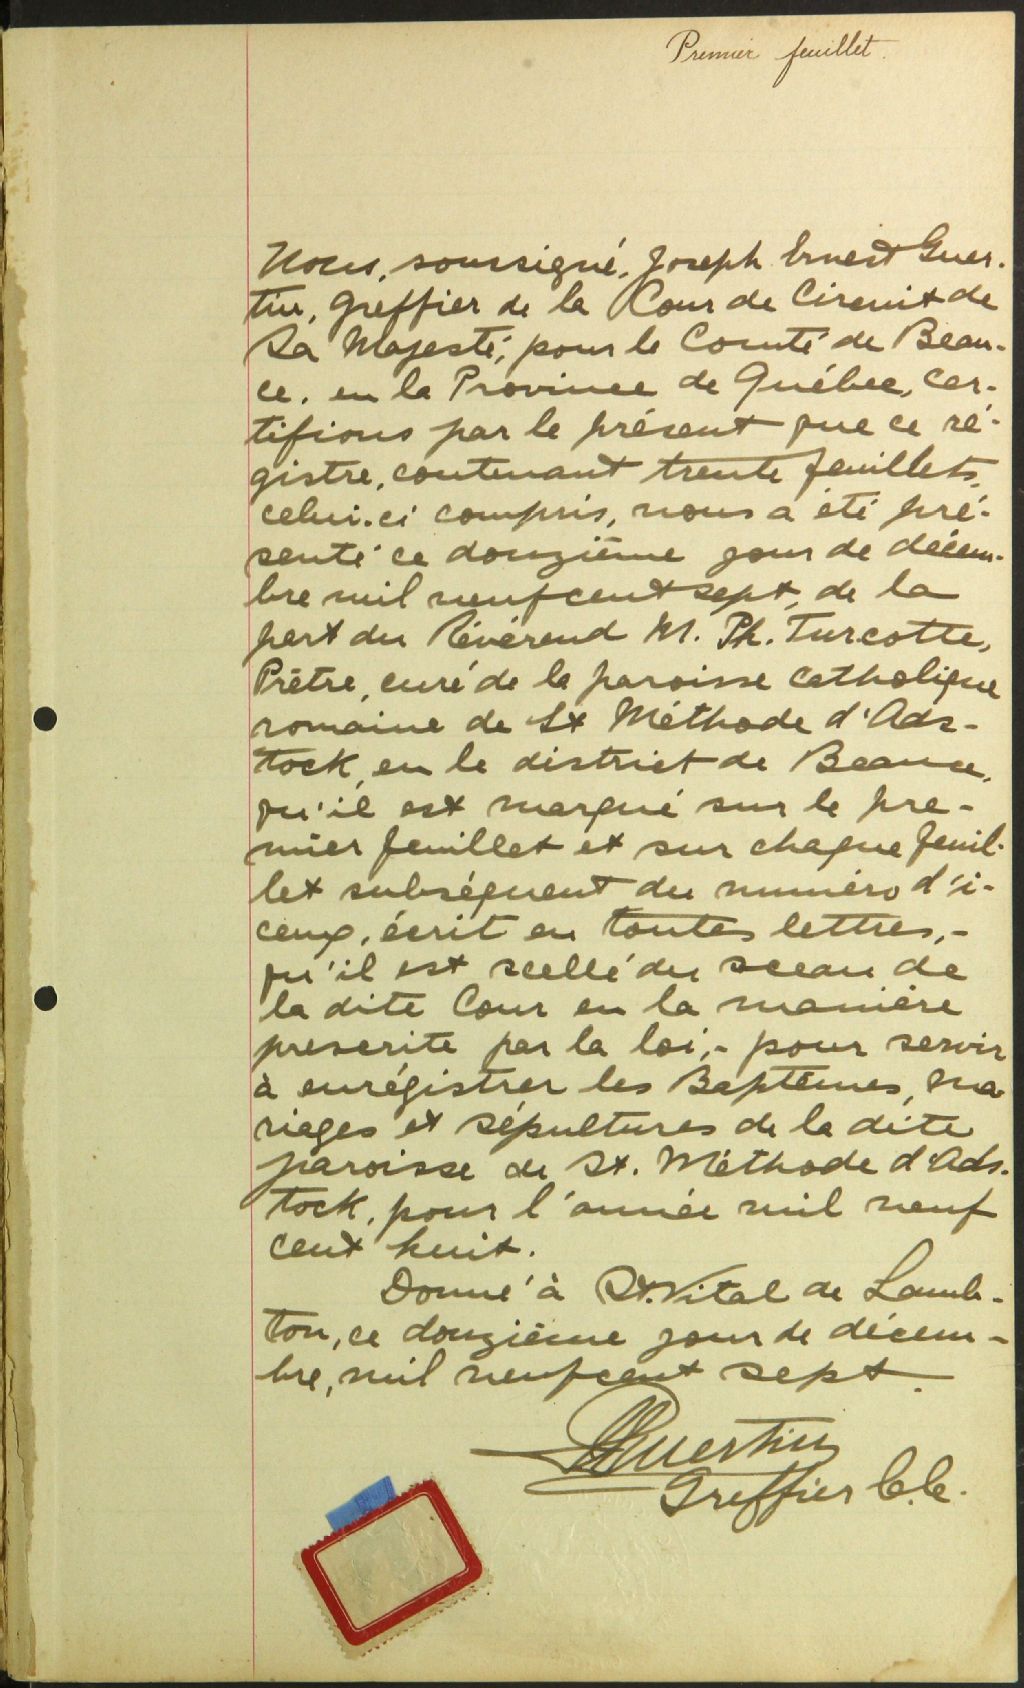 Premier feuillet.
Nous, soussigné, Joseph Ernest Guer-
tin, Greffier de la Cour de Circuit de
Sa Majesté, pour le Comté de Beau-
ce, en la Province de Québec, cer-
tifions par le présent que ce ré-
gistre, contenant trente feuillets,
celui-ci compris, nous a été pré-
senté ce douzième jour de décem-
bre mil neuf cent sept, de la
part du Révérend M. Ph. Turcotte,
Prêtre, curé de la paroisse catholique
romaine de St Méthode d'Ads-
tock, en le district de Beauce,
qu'il est marqué sur le pre-
mier feuillet et sur chaque feuil-
let subséquent du numéro d'i-
ceux, écrit en toutes lettres,-
qu'il est scellé du sceau de
la dite Cour en la manière
prescrite par la loi,- pour servir
à enrégistrer les Baptêmes, Ma-
riages et sépultures de la dite
paroisse de St. Méthode d'Ads-
tock, pour l'année mil neuf
cent huit.
Donné à St. Vital de Lamb-
ton, ce douzième jour de décem-
bre, mil neuf cent sept.
Guertin
Greffier C.C.